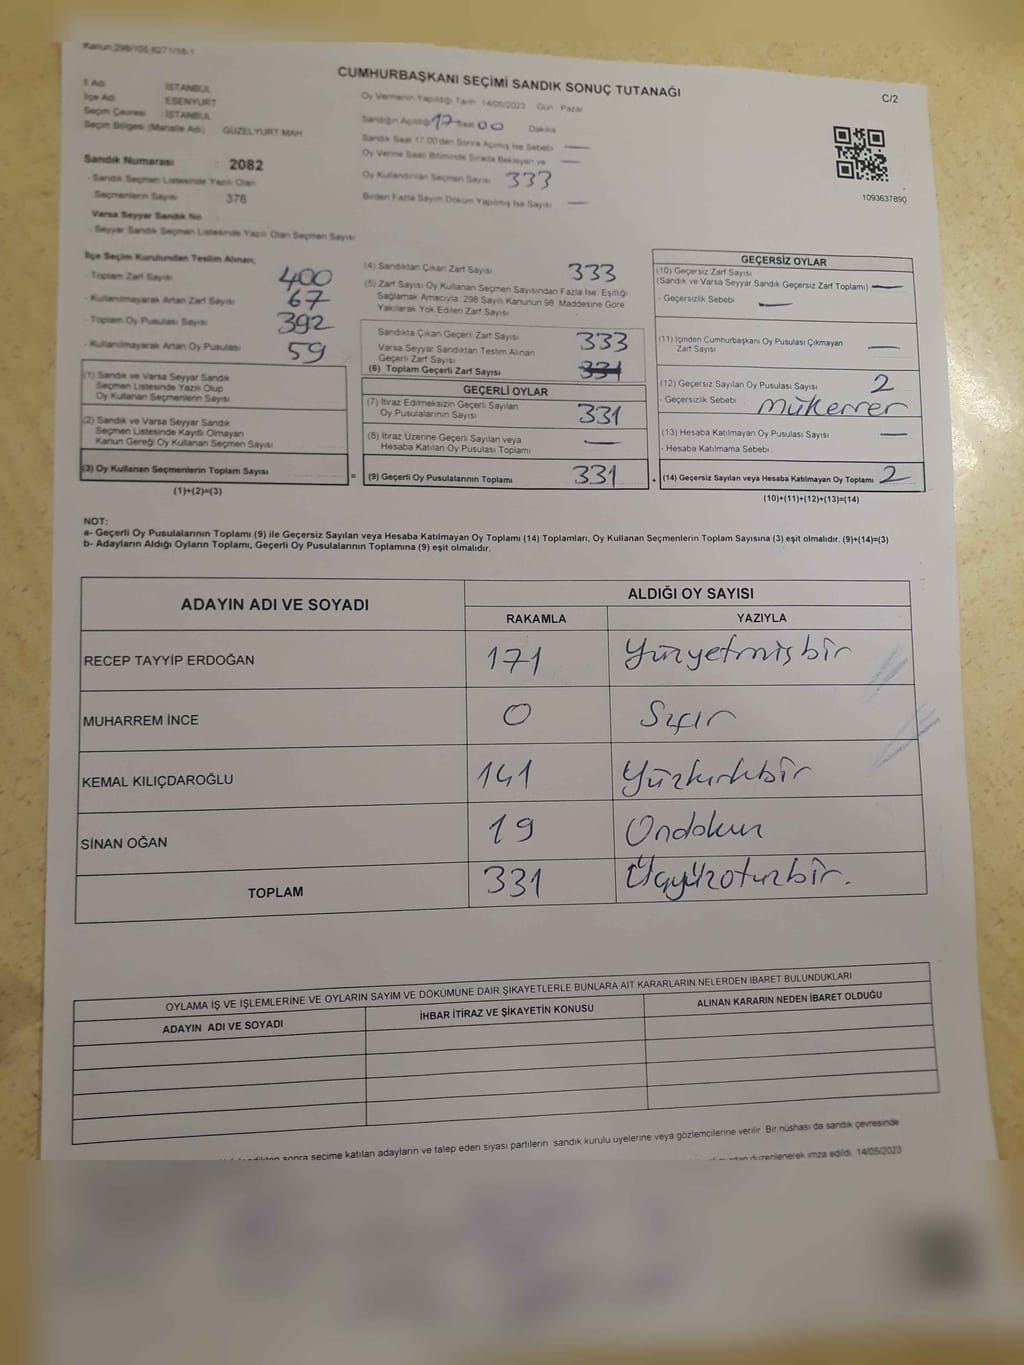 Kanun:298/105,6271/18-1
CUMHURBAŞKANI SEÇİMİ SANDIK SONUÇ TUTANAĞI
C/2
İl Adı : İSTANBUL
İlçe Adı : ESENYURT
Seçim Çevresi : İSTANBUL
Seçim Bölgesi (Mahalle Adı) : GÜZELYURT MAH
Sandık Numarası : 2082
- Sandık Seçmen Listesinde Yazılı Olan
Seçmenlerin Sayısı : 376
Varsa Seyyar Sandık No
- Seyyar Sandık Seçmen Listesinde Yazılı Olan Seçmen Sayısı
Oy Vermenin Yapıldığı Tarih 14/05/2023 Gün : Pazar
Sandığın Açıldığı 17 Saat 00 Dakika
Sandık Saat 17:00'den Sonra Açılmış İse Sebebi —
Oy Verme Saati Bitiminde Sırada Bekleyen ve —
Oy Kullandırılan Seçmen Sayısı 333
Birden Fazla Sayım Döküm Yapılmış İse Sayısı —
1093637890
İlçe Seçim Kurulundan Teslim Alınan;
- Toplam Zarf Sayısı 400
- Kullanılmayarak Artan Zarf Sayısı 67
- Toplam Oy Pusulası Sayısı 392
- Kullanılmayarak Artan Oy Pusulası 59
(1) Sandık ve Varsa Seyyar Sandık
Seçmen Listesinde Yazılı Olup
Oy Kullanan Seçmenlerin Sayısı
(2) Sandık ve Varsa Seyyar Sandık
Seçmen Listesinde Kayıtlı Olmayan
Kanun Gereği Oy Kullanan Seçmen Sayısı
(3) Oy Kullanan Seçmenlerin Toplam Sayısı =
(1)+(2)=(3)
(4) Sandıktan Çıkan Zarf Sayısı 333
(5) Zarf Sayısı Oy Kullanan Seçmen Sayısından Fazla İse, Eşitliği
Sağlamak Amacıyla, 298 Sayılı Kanunun 98. Maddesine Göre
Yakılarak Yok Edilen Zarf Sayısı
Sandıkta Çıkan Geçerli Zarf Sayısı 333
Varsa Seyyar Sandıktan Teslim Alınan
Geçerli Zarf Sayısı
(6) Toplam Geçerli Zarf Sayısı 331
GEÇERLİ OYLAR
(7) İtiraz Edilmeksizin Geçerli Sayılan
Oy Pusulalarının Sayısı 331
(8) İtiraz Üzerine Geçerli Sayılan veya
Hesaba Katılan Oy Pusulası Toplamı —
(9) Geçerli Oy Pusulalarının Toplamı 331 +
GEÇERSİZ OYLAR
(10) Geçersiz Zarf Sayısı
(Sandık ve Varsa Seyyar Sandık Geçersiz Zarf Toplamı) —
- Geçersizlik Sebebi —
(11) İçinden Cumhurbaşkanı Oy Pusulası Çıkmayan
Zarf Sayısı —
(12) Geçersiz Sayılan Oy Pusulası Sayısı 2
- Geçersizlik Sebebi mükerrer
(13) Hesaba Katılmayan Oy Pusulası Sayısı —
- Hesaba Katılmama Sebebi
(14) Geçersiz Sayılan veya Hesaba Katılmayan Oy Toplamı 2
(10)+(11)+(12)+(13)=(14)
NOT:
a- Geçerli Oy Pusulalarının Toplamı (9) ile Geçersiz Sayılan veya Hesaba Katılmayan Oy Toplamı (14) Toplamları, Oy Kullanan Seçmenlerin Toplam Sayısına (3) eşit olmalıdır. (9)+(14)=(3)
b- Adayların Aldığı Oyların Toplamı, Geçerli Oy Pusulalarının Toplamına (9) eşit olmalıdır.
ADAYIN ADI VE SOYADI
ALDIĞI OY SAYISI
RAKAMLA YAZIYLA
RECEP TAYYİP ERDOĞAN 171 Yüzyetmişbir
MUHARREM İNCE 0 Sıfır
KEMAL KILIÇDAROĞLU 141 Yüzkırkbir
SİNAN OĞAN 19 Ondokuz
TOPLAM 331 Üçyüzotuzbir.
OYLAMA İŞ VE İŞLEMLERİNE VE OYLARIN SAYIM VE DÖKÜMÜNE DAİR ŞİKAYETLERLE BUNLARA AİT KARARLARIN NELERDEN İBARET BULUNDUKLARI
ADAYIN ADI VE SOYADI İHBAR İTİRAZ VE ŞİKAYETİN KONUSU ALINAN KARARIN NEDEN İBARET OLDUĞU
sonra seçime katılan adayların ve talep eden siyasi partilerin sandık kurulu üyelerine veya gözlemcilerine verilir. Bir nüshası da sandık çevresinde
düzenlenerek imza edildi. 14/05/2023